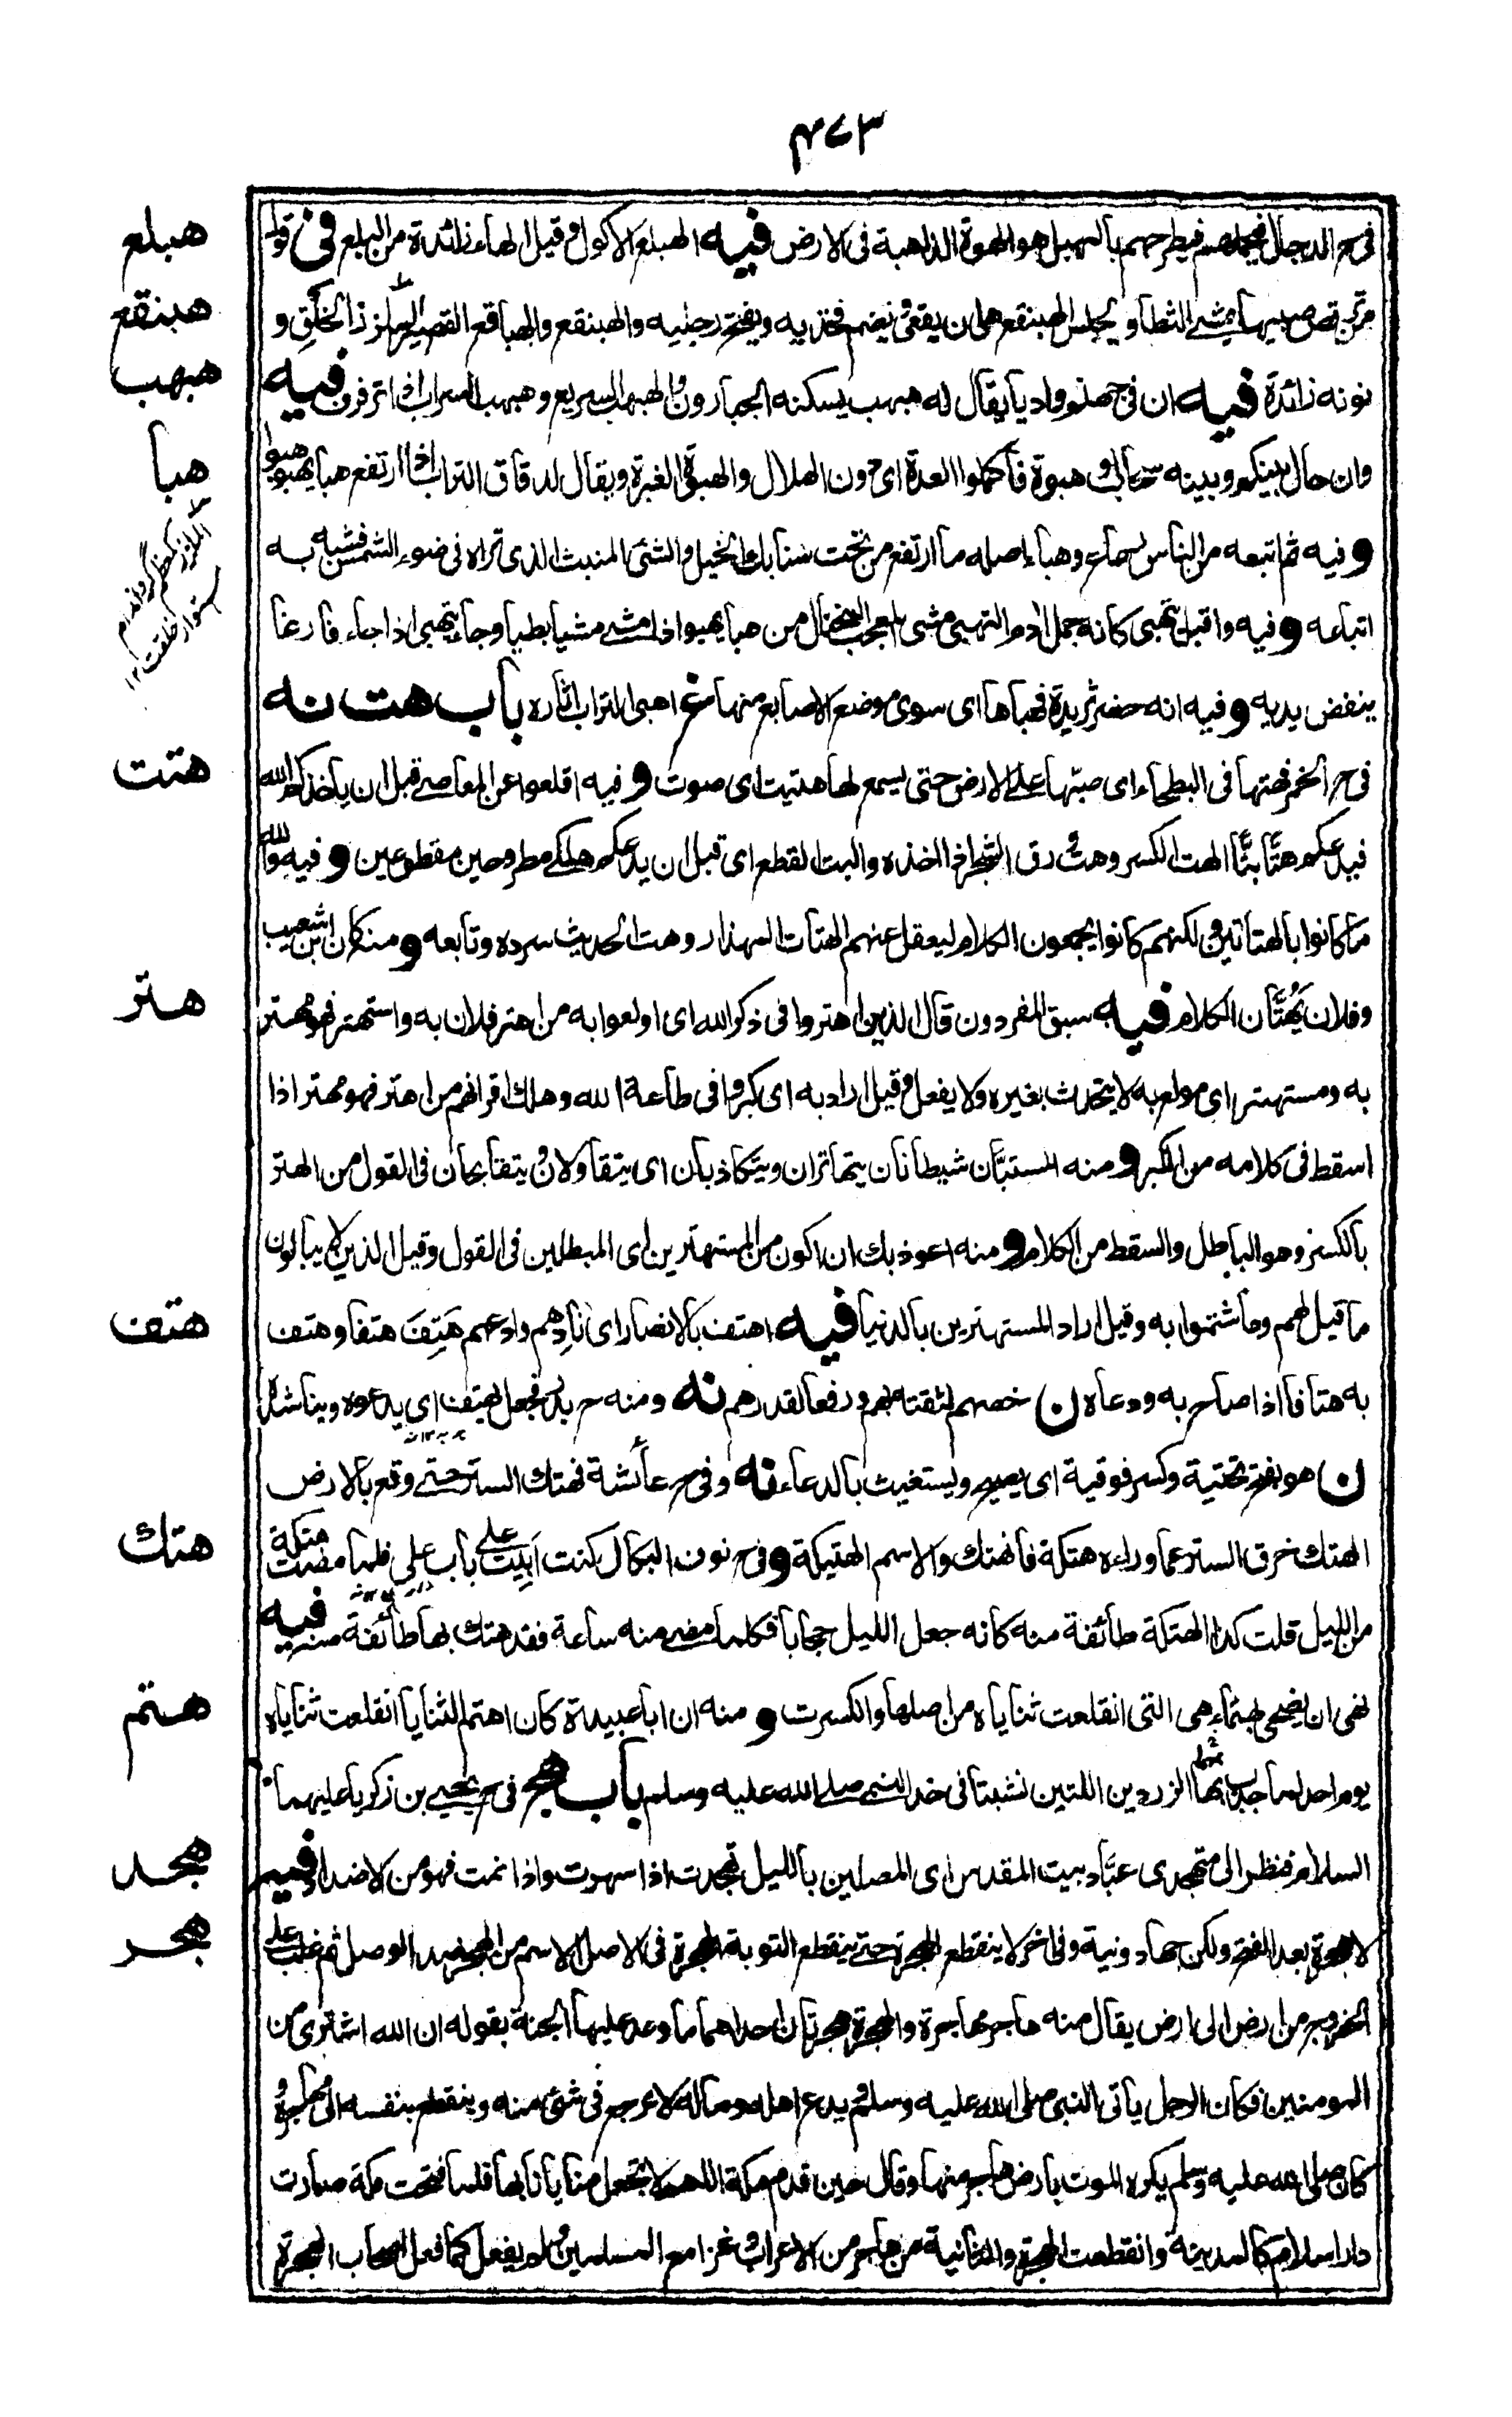 ٤٧٣
في ح الدجال فيحملهم فيطرحهم بالمهبل هو الهوة الذاهبة في الارض فيه الهبلع الاكول وقيل الهاء زائدة من البلع في قوله
هبلع
يمشي الثطا و يجلس الهبنقع هي ان يقعي ويضم فخذيه ويفتح رجليه والهبنقع والهباقع القصير الملزز الخلق و
هبنقع
نونه زائدة فيه ان في جهنم واديا يقال له هبهب يسكنه الجبارون والهبهب السريع وهبهب السراب اذا ترقرق فيه
هبهب
وان حال بينكم وبينه سحاب او هبوة فأكملوا العدة اى دون الهلال والهبوة الغبرة ويقال لدقاق التراب اذا ارتفع هبا يهبو هبوا
هبا
و فيه ثم اتبعه من الناس رعاع وهباء اصله ما ارتفع من تحت سنابك الخيل والشئ المنبث الذى تراه في ضوء الشمس فشبه به
اتباعه و فيه واقبل يتهبى كانه جمل ادم التهبي مشى المعجب المختال من هبا يهبو اذا مشى مشيا بطيا وجاء يتهبى اذا جاء فارغا
ينفض يديه و فيه انه حضر ثريدة فهباها اى سوى موضع الاصابع منها مغ اهبى التراب اثاره باب هت نه
في ح الخمر فهتها في البطحاء اى صبها على الارض حتى يسمع لها هتيت اى صوت و فيه اقلعوا عن المعاصي قبل ان ياخذكم الله
هتت
فيدعكم هتًّا بتًّا الهت الكسر وهت ورق الشجر اخذه والبت القطع اى قبل ان يدعكم هلكى مطروحين مقطوعين و فيه والله
ما كانوا بالهتاتين ولكنهم كانوا يجمعون الكلام ليعقل عنهم الهتات المهذار وهت الحديث سرده وتابعه و منه كان ابن شعيب
وفلان يهتان الكلام فيه سبق المفردون قال الذين اهتروا في ذكر الله اى اولعوا به من اهتر فلان به واستهتر فهو مهتر
هتر
به ومستهتر اى مولع به لا يتحدث بغيره ولا يفعل وقيل اراد به اى كبروا في طاعة الله وهلك اقرانهم من اهتر فهو مهتر اذا
اسقط في كلامه من الكبر و منه المستبّان شيطانان يتهاتران ويتكاذبان اى يتقاولان ويتقابحان في القول من الهتر
بالكسر وهو الباطل والسقط من الكلام و منه اعوذ بك ان اكون من المستهترين اى المبطلين في القول وقيل الذين لا يبالون
ما قيل لهم وما شتموا به وقيل اراد المستهترين بالدنيا فيه اهتف بالانصار اى نادهم وادعهم هَتِفَ هتفا وهتف
هتف
به هتافا اذا صاح به ودعاه ن خصهم لثقته بهم ورفعا لقدرهم نه ومنه ح بدر فجعل يهتف اى يدعوه ويناشده
ن هو بفتح تحتية وكسر فوقية اى يصيح ويستغيث بالدعاء نه وفي ح عائشة فهتك الستر حتى وقع بالارض
الهتك خرق الستر عما وراءه هتكه فانهتك والاسم الهتيكة و في ح نوف البكالى كنت ابيت على باب على فلما مضت هتكة
هتك
من الليل قلت كذا الهتكة طائفة منه كانه جعل الليل حجابا فكلما مضى منه ساعة فقد هتك بها طائفة منه فيه
نهى ان يضحى بهتماء هى التى انقلعت ثناياه من اصلها وانكسرت و منه ان ابا عبيدة كان اهتم الثنايا انقلعت ثناياه
هتم
يوم احد لما جذب بها الزردين اللتين نشبتا في خد النبي صلى الله عليه وسلم باب هج في ح يحيى بن زكريا عليهما
السلام فنظر الى متهجدى عبّاد بيت المقدس اى المصلين بالليل تهجدت اذا سهرت واذا نمت فهو من الاضداد فيه
هجد
لا هجرة بعد الفتح ولكن جهاد ونية وفى اخر لا ينقطع الهجرة حتى ينقطع التوبة الهجرة في الاصل الاسم من الهجر ضد الوصل ثم غلب على
هجر
الخروج من ارض الى ارض يقال منه هاجر مهاجرة والهجرة هجرتان احداهما ما وعد عليها الجنة بقوله ان الله اشترى من
المومنين فكان الرجل يأتى النبي صلى الله عليه وسلم ويدع اهله وماله لا يرجع في شئ منه وينقطع بنفسه الى مهاجره و
كان صلى الله عليه وسلم يكره الموت بارض هاجر منها وقال حين قدم مكة اللهم لا تجعل منايانا بها فلما فتحت مكة صارت
دار اسلام كالمدينة وانقطعت الهجرة والثانية من هاجر من الاعراب وغزا مع المسلمين ولم يفعل كما فعل اصحاب الهجرة